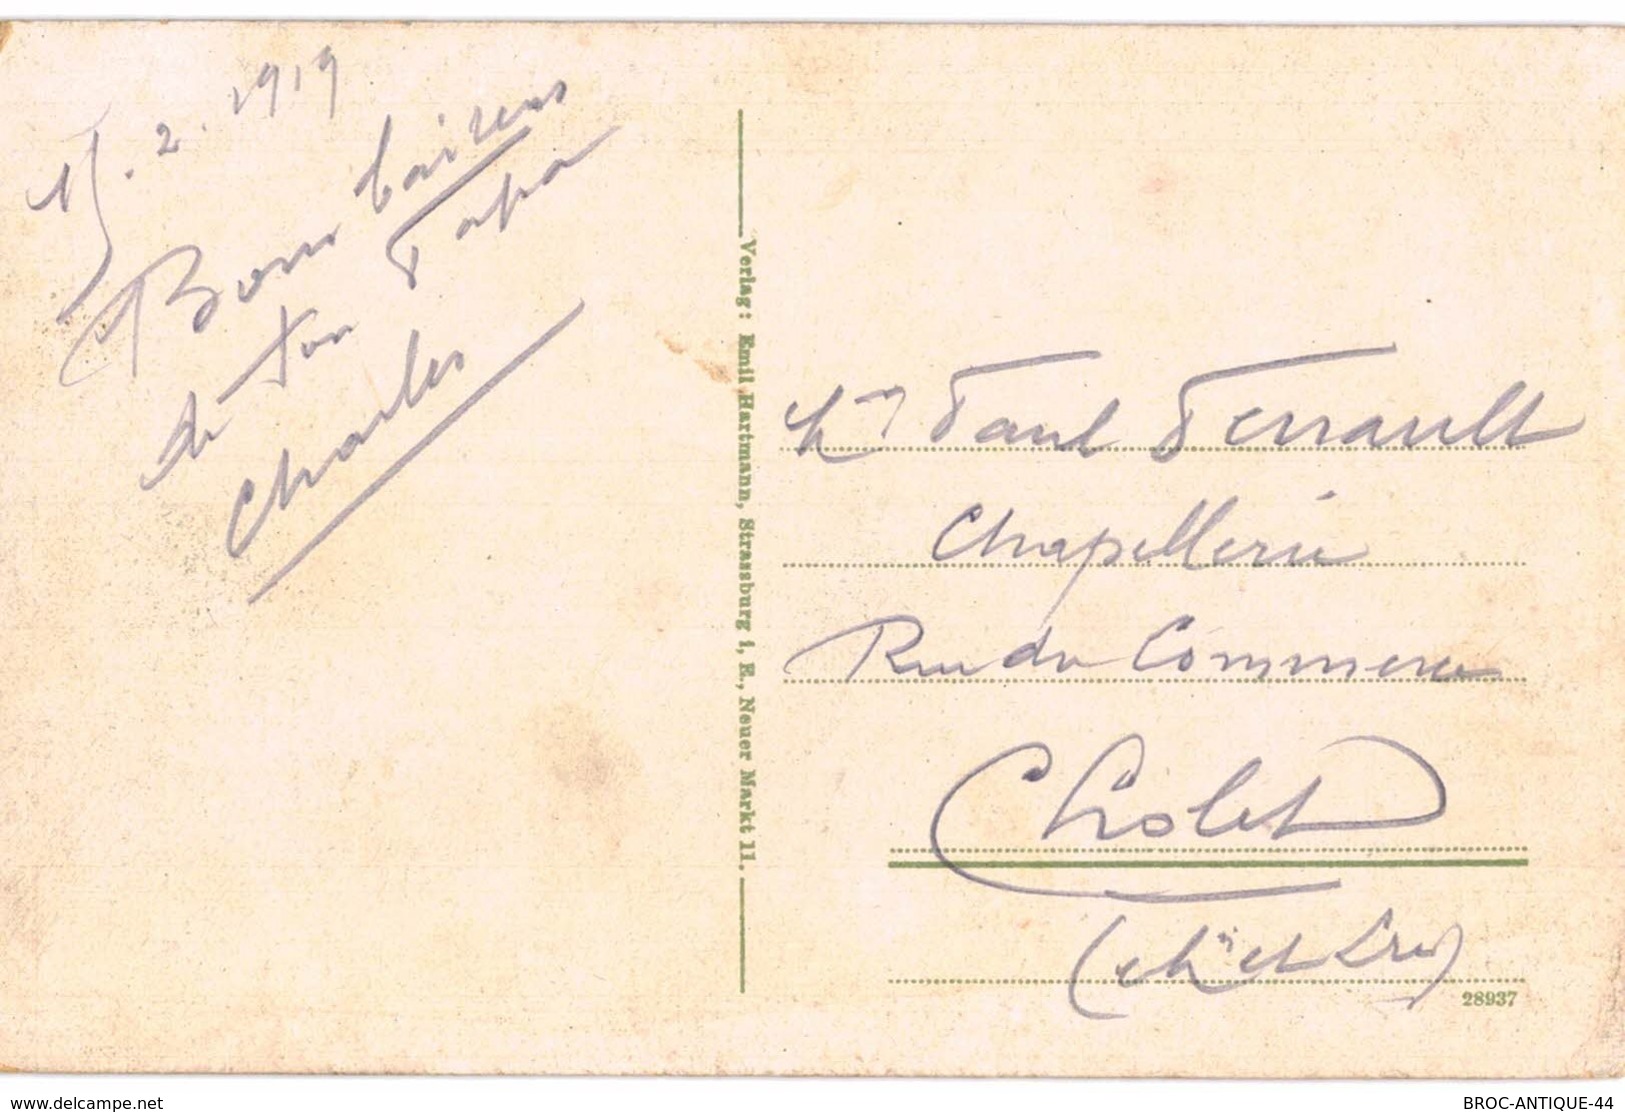 15.2.1919
Bons baisers
de ton Papa
Charles
Verlag: Emil Hartmann, Strassburg i. E., Neuer Markt 11.
Mr Paul Perrault
Chapellerie
Rue du Commerce
Cholet
28937
www.delcampe.net
BROC-ANTIQUE-44